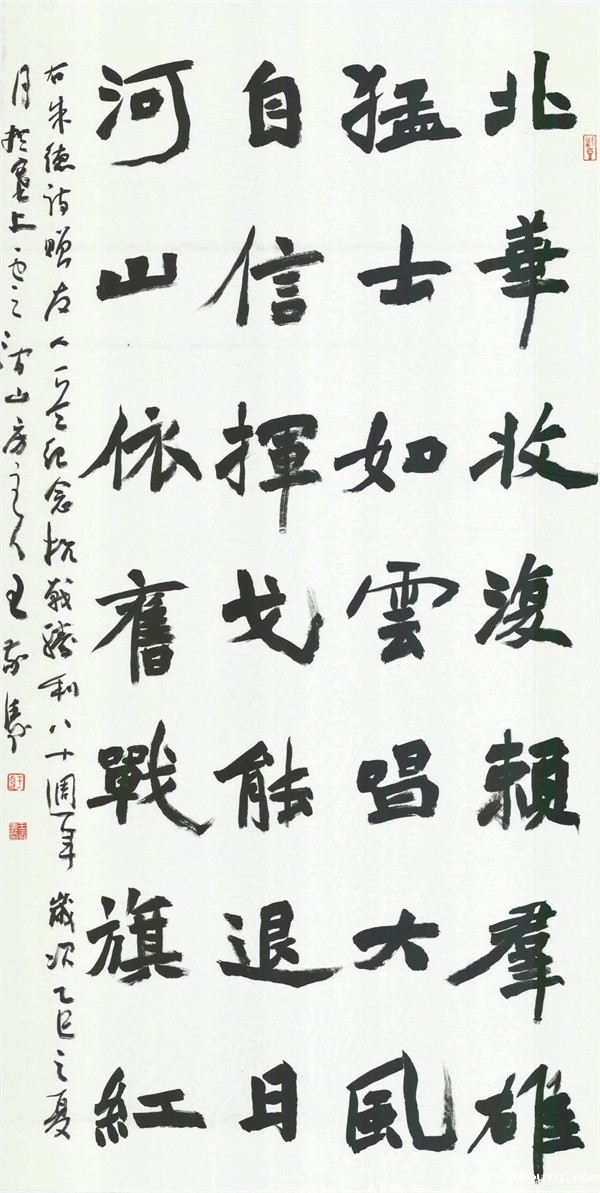 北華收復賴羣雄
猛士如雲唱大風
自信揮戈能退日
河山依舊戰旗紅
右朱德詩贈友人一首紀念抗戰勝利八十週年 歲次乙巳之夏
月於塞上 山房主人王